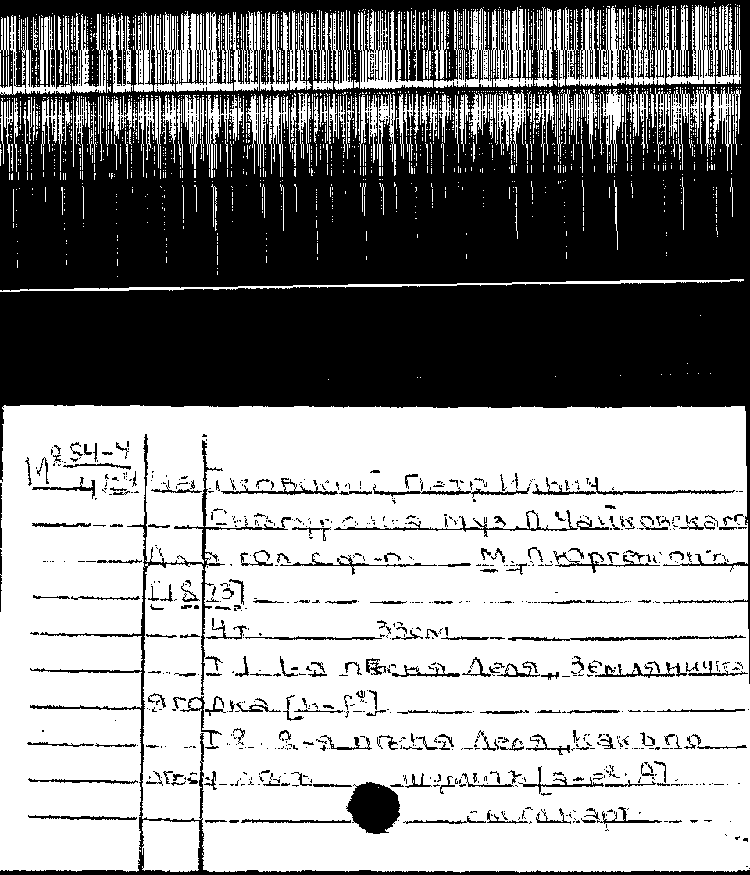 М 254-4
Чайковский, Петр Ильич.
Снѣгурочка муз. П. Чайковского
Для гол. с ф-п. М., П. Юргенсонъ,
[1873]
4 т. 33 см
Т 1. 1-я пѣсня Леля „Земляничка
ягодка [h-f²]
Т 2. 2-я пѣсня Леля „Какъ по
лѣсу лѣсъ шумитъ [a-e²; A].
см. сл. карт.